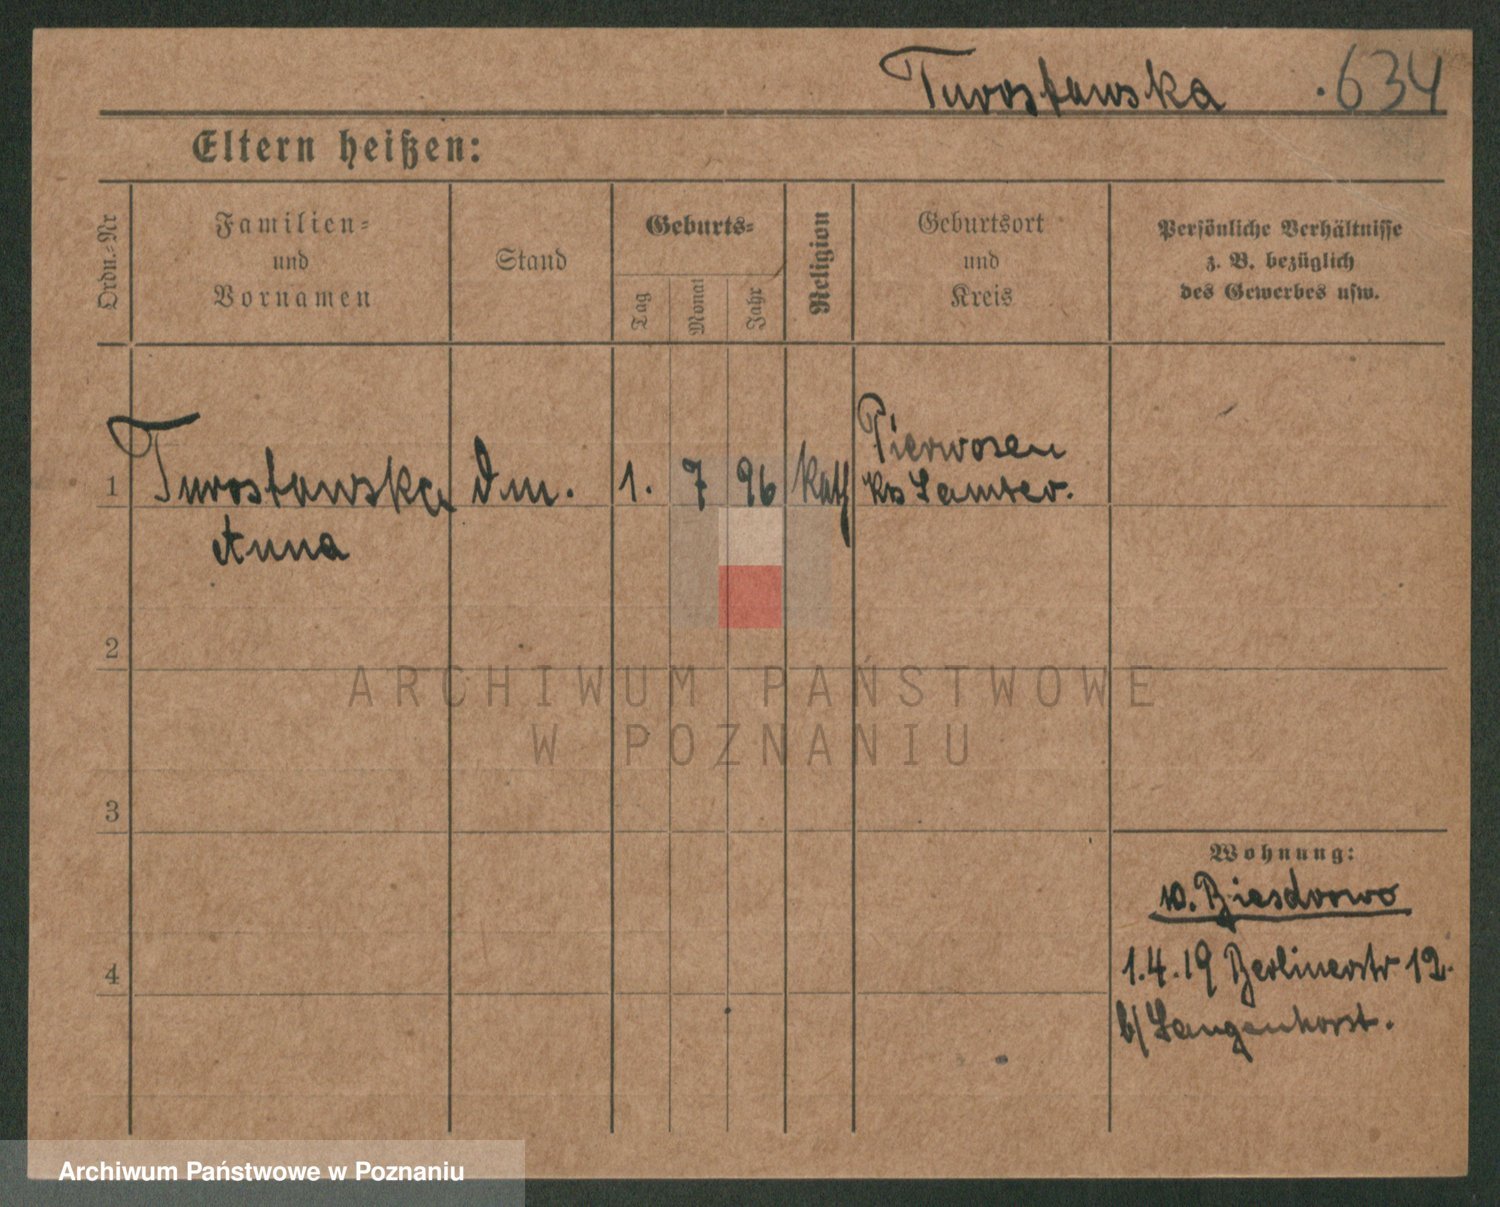 Turostowska .634
Eltern heißen:
Ordn.-Nr
Familien- und Vornamen
Stand
Geburts-
Tag
Monat
Jahr
Religion
Geburtsort und Kreis
Persönliche Verhältnisse
z. B. bezüglich
des Gewerbes usw.
1 Turostowska Dm. 1. 7 96 kath Pierwosen
Krs Samter.
Anna
2
3
4
ARCHIWUM PAŃSTWOWE
W POZNANIU
Wohnung:
w. Biesdrowo
1.4.19 Berlinerstr 12.
b/ Langenhorst.
Archiwum Państwowe w Poznaniu